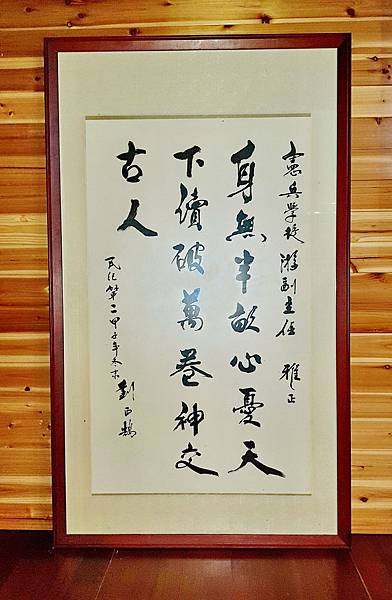 憲兵學校游副主任 雅正
身無半畝心憂天
下讀破萬卷神交
古人
民紀第二甲子年冬 劉